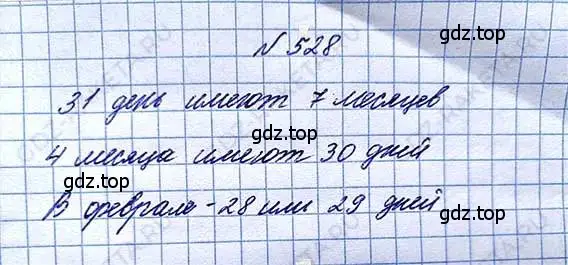 № 528
gdz.top
31 день имеют 7 месяцев
gdz.top
4 месяца имеют 30 дней
gdz.top
В феврале - 28 или 29 дней
gdz.top